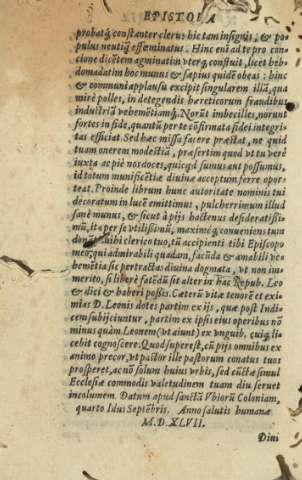 EPISTOLA
probatq́; constanter clerus hic tam insignis, & po-
pulus neutiq̃ effœminatus. Hinc enĩ ad te pro con-
cione dicẽtem agminatim vterq́; confluit, licet heb-
domadatim hoc munus & sæpius quidẽ obeas: hinc
& communi applausu excipit singularem illã, qua
mirè polles, in detegendis hæreticorum fraudibus
industriã vehemẽtiamq́;. Norũt imbecilles, norunt
fortes in fide, quantũ per te cõfirmata fidei integri-
tas efficiat. Sed hæc missa facere præstat, ne quid
tuam onerem modestiã, præsertim quod vt tu verè
iuxta ac piè nos doces, quicqd sumus aut possumus,
id totum munificẽtiæ diuinæ acceptum ferre opor-
teat. Proinde librum hunc autoritate nominis tui
decoratum in lucẽ emittimus, pulcherrimum illud
sanè munus, & sicut à pijs hactenus desideratissi-
mũ, ita per se vtilissimũ, maximeq́; conueniens tum
tibi clerico tuo, tũ accipienti tibi Episcopo
meo, qui admirabili quadam, facũda & amabili ve-
hemẽtia sic pertractas diuina dogmata, vt non im-
merito, si liberè fatẽdũ sit alter in hac Repub. Leo
& dici & haberi possis. Cæterũ vitæ tenorẽ et exi-
mias D. Leonis dotes partim ex ijs, quæ post Indi-
cem subijciuntur, partim ex ipsis eius operibus nõ
minus quàm Leonem (vt aiunt) ex vnguib. cuiq́; li-
cebit cognoscere. Quod superest, cũ pijs omnibus ex
animo precor, vt pastor ille pastorum conatus tuos
prosperet, ac nõ solum huius vrbis, sed cũctæ simul
Ecclesiæ commodis valetudinem tuam diu seruet
incolumem. Datum apud sanctã Vbiorũ Coloniam,
quarto Idus Septẽbris. Anno salutis humanæ
M.D.XLVII.
Diui